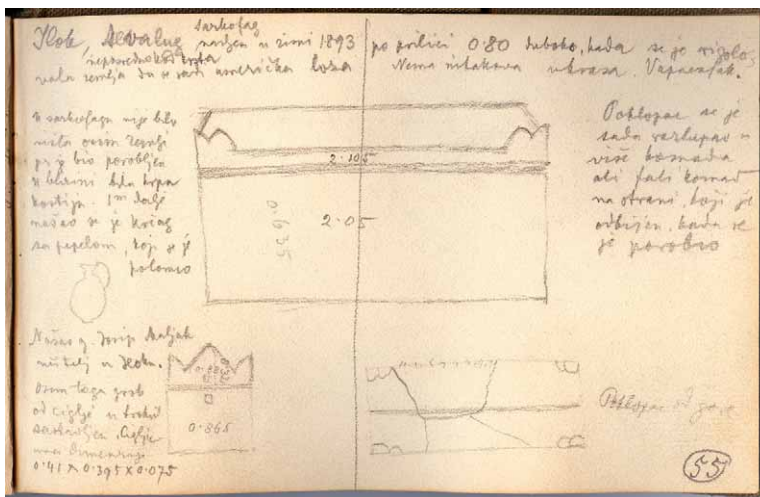 Ilok,
sarkofag
nadjen u zimi 1893 po prilici 0·80 duboko, kada se je rigolo-
vala zemlja da se sadi američka loza Nema nikakova ukrasa. Vapnenjak.
U sarkofagu nije bilo
ništa osim zemlje
jer je bio porobljen
u blizini bila hrpa
kostiju. 1m dalje
našao se je krčag
sa pepelom, koji se je
polomio
Poklopac se je
sada razlupao u
više komada
ali fali komad
na strani, koji je
odbijen, kada se
je porobio
2·105
2·05
0·635
Našao g. Josip
učitelj u Iloku.
Osim toga grob
od ciglje u
sastavljen. Ciglje
0·41 × 0·395 × 0·075
0·865
Poklopac od gore
55